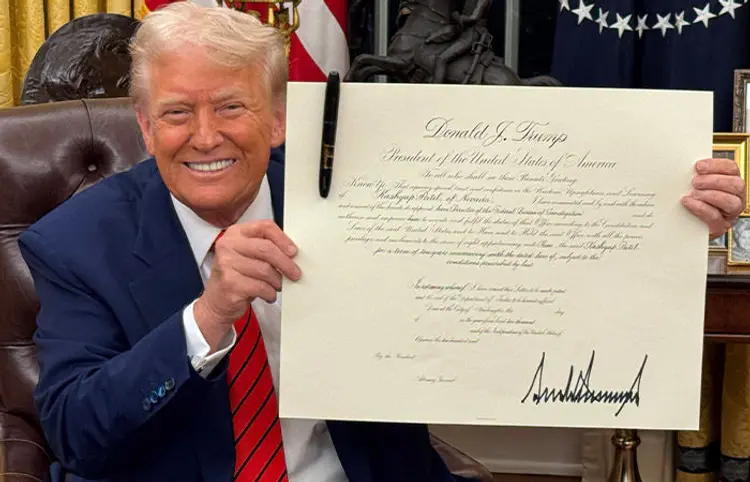 Donald J. Trump
President of the United States of America
To all who shall see these Presents Greeting:
Know Ye: That reposing special trust and confidence in the Wisdom, Uprightness, and Learning
of Kashyap Patel, of Nevada, I have nominated, and, by and with the advice
and consent of the Senate, do appoint him Director of the Federal Bureau of Investigation and do
authorize and empower him to execute and fulfill the duties of that Office according to the Constitution and
Laws of the said United States and to Have and to Hold the said Office, with all the powers
privileges and emoluments to the same of right appertaining, unto Him, the said Kashyap Patel
for a term of ten years commencing with the date hereof, subject to the
conditions prescribed by law.
In testimony whereof I have caused these Letters to be made patent
and the seal of the Department of Justice to be hereunto affixed.
Done at the City of Washington, this day
of in the year of our Lord two thousand
and of the Independence of the United States of
America the two hundred and
By the President:
Attorney General